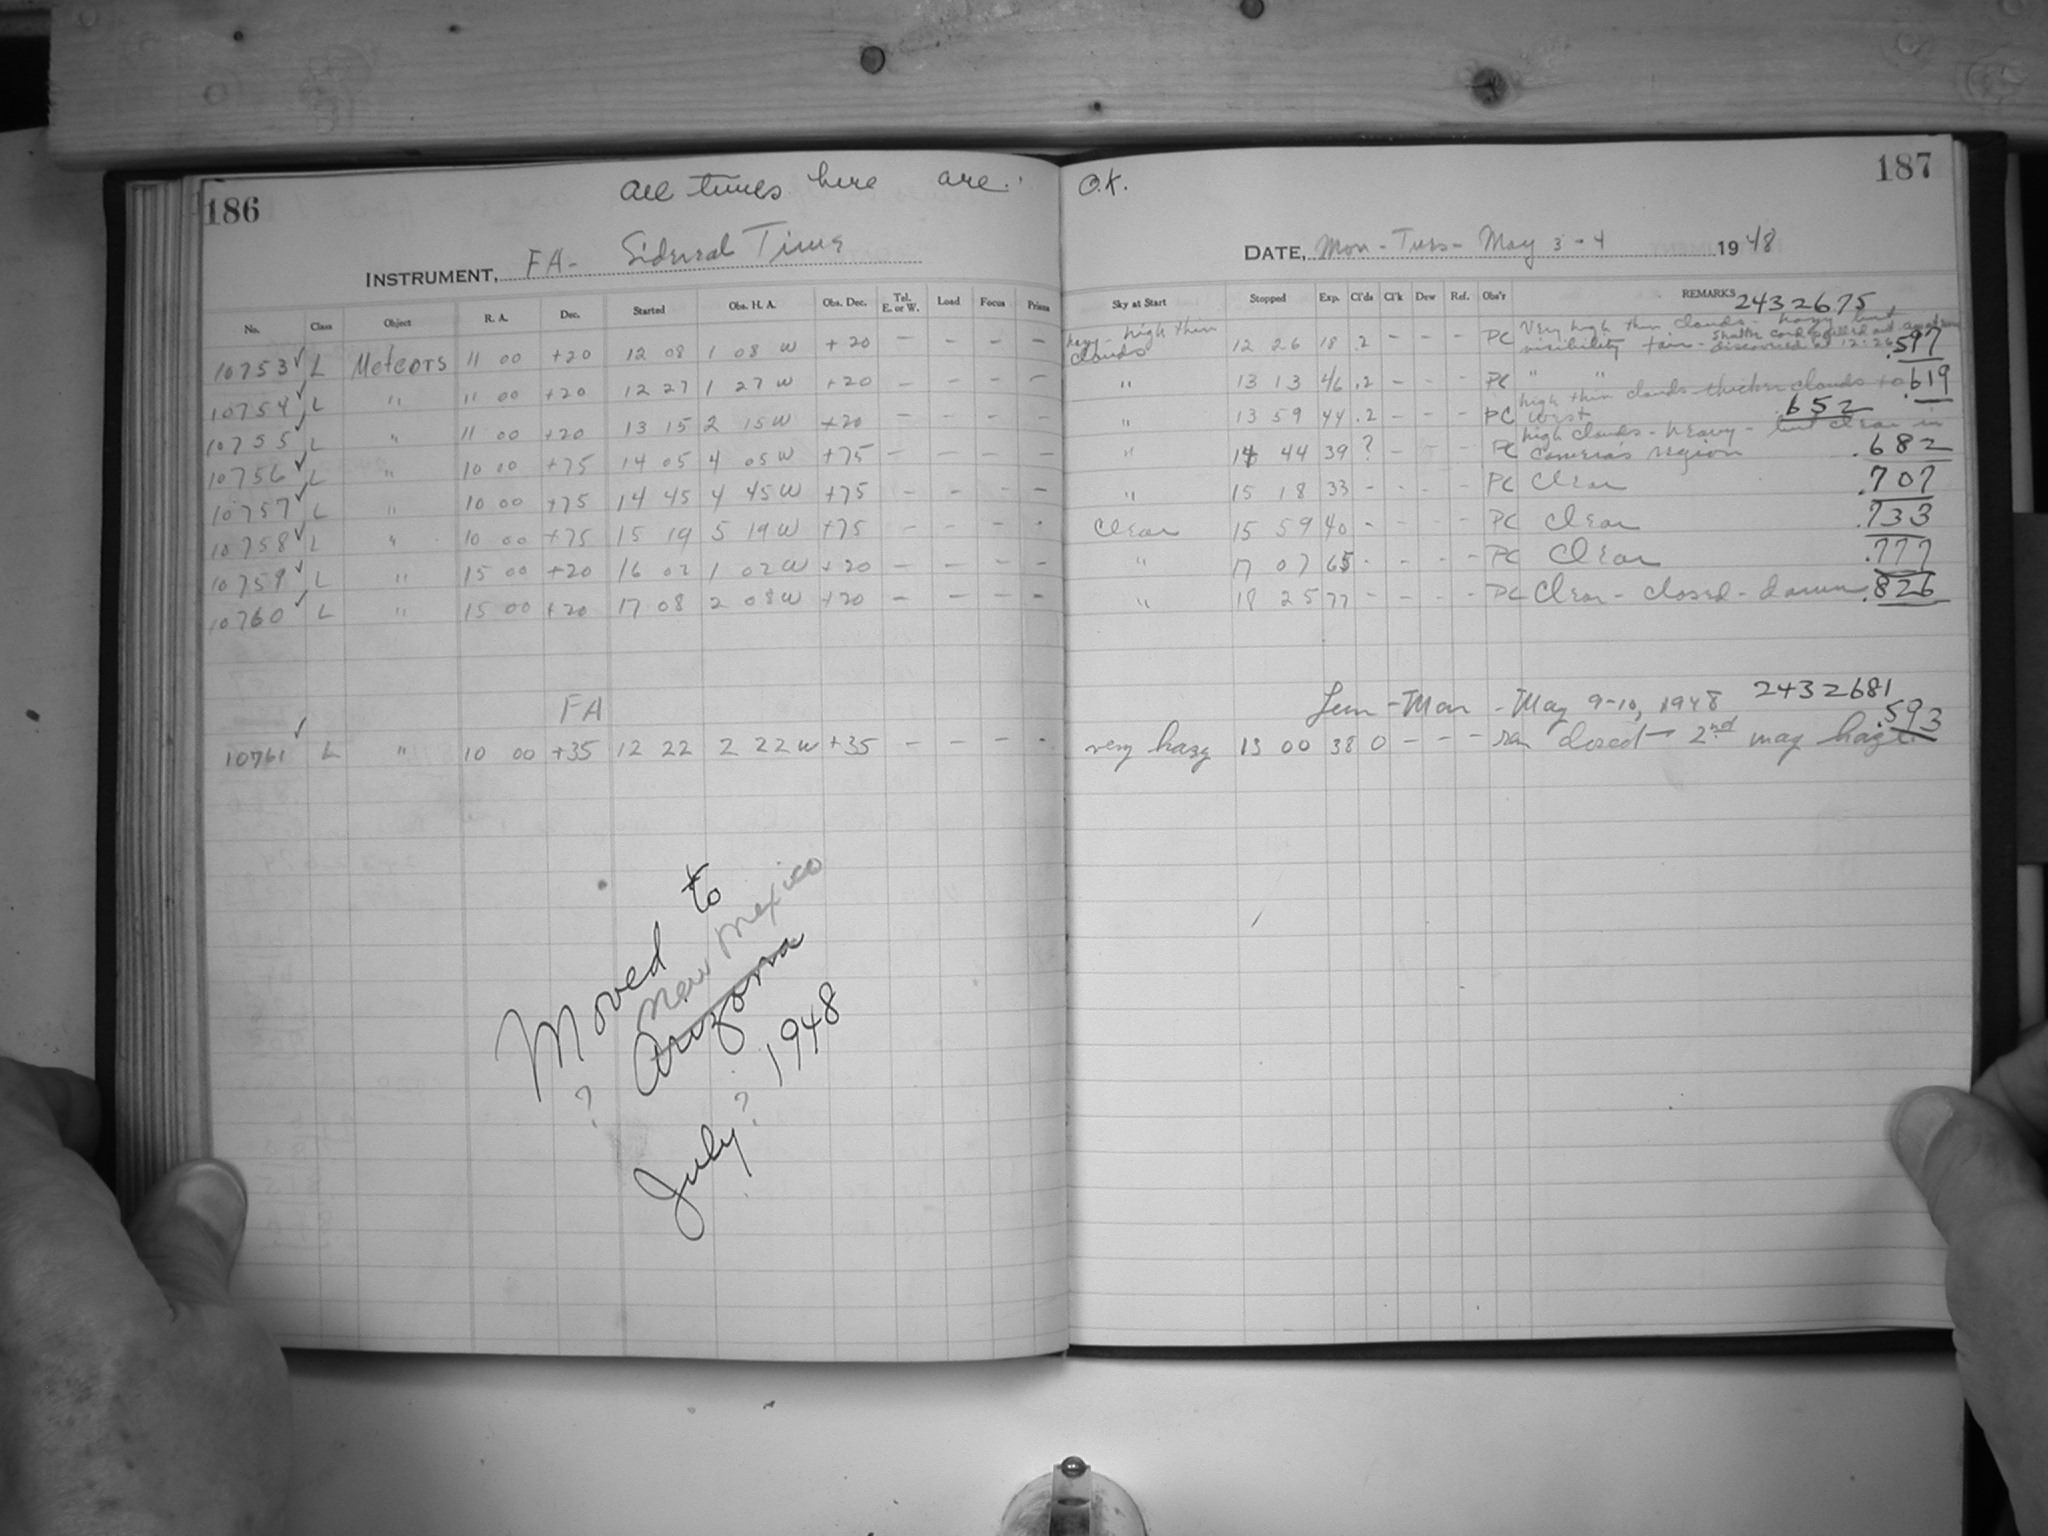 186 All times here are: O.K. 187
INSTRUMENT, FA - Sidereal Time DATE, Mon - Tues - May 3 - 4 1948
No. Class Object R. A. Dec. Started Obs. H. A. Obs. Dec. Tel. E. or W. Load Focus Prisms Sky at Start Stopped Exp. Cl'ds Cl'k Dew Ref. Obs'r REMARKS 2432675
10753 ✓ L Meteors 11 00 +20 12 08 1 08 W +20 – – – – high thin clouds 12 26 18 .2 – – – PC Very high thin clouds - hazy but visibility fair - shutter cord pulled out discovered at 12:26 .597
10754 ✓ L " 11 00 +20 12 27 1 27 W +20 – – – – " 13 13 46 .2 – – – PC " " .619
10755 ✓ L " 11 00 +20 13 15 2 15 W +20 – – – – " 13 59 44 .2 – – – PC high thin clouds - thicker clouds to west .652
10756 ✓ L " 10 00 +75 14 05 4 05 W +75 – – – – " 14 44 39 ? – – – PC high clouds - heavy - but clear in camera's region .682
10757 ✓ L " 10 00 +75 14 45 4 45 W +75 – – – – " 15 18 33 – – – – PC Clear .707
10758 ✓ L " 10 00 +75 15 19 5 19 W +75 – – – – Clear 15 59 40 – – – – PC Clear .733
10759 ✓ L " 15 00 +20 16 02 1 02 W +20 – – – – " 17 07 65 – – – – PC Clear .777
10760 ✓ L " 15 00 +20 17 08 2 08 W +20 – – – – " 18 25 77 – – – – PC Clear - closed - dawn .826
FA Sun - Mon - May 9-10, 1948 2432681
10761 ✓ L " 10 00 +35 12 22 2 22 W +35 – – – – very hazy 13 00 38 0 – – – closed - 2nd mag haze .593
Moved to
New Mexico
Arizona
? July? 1948